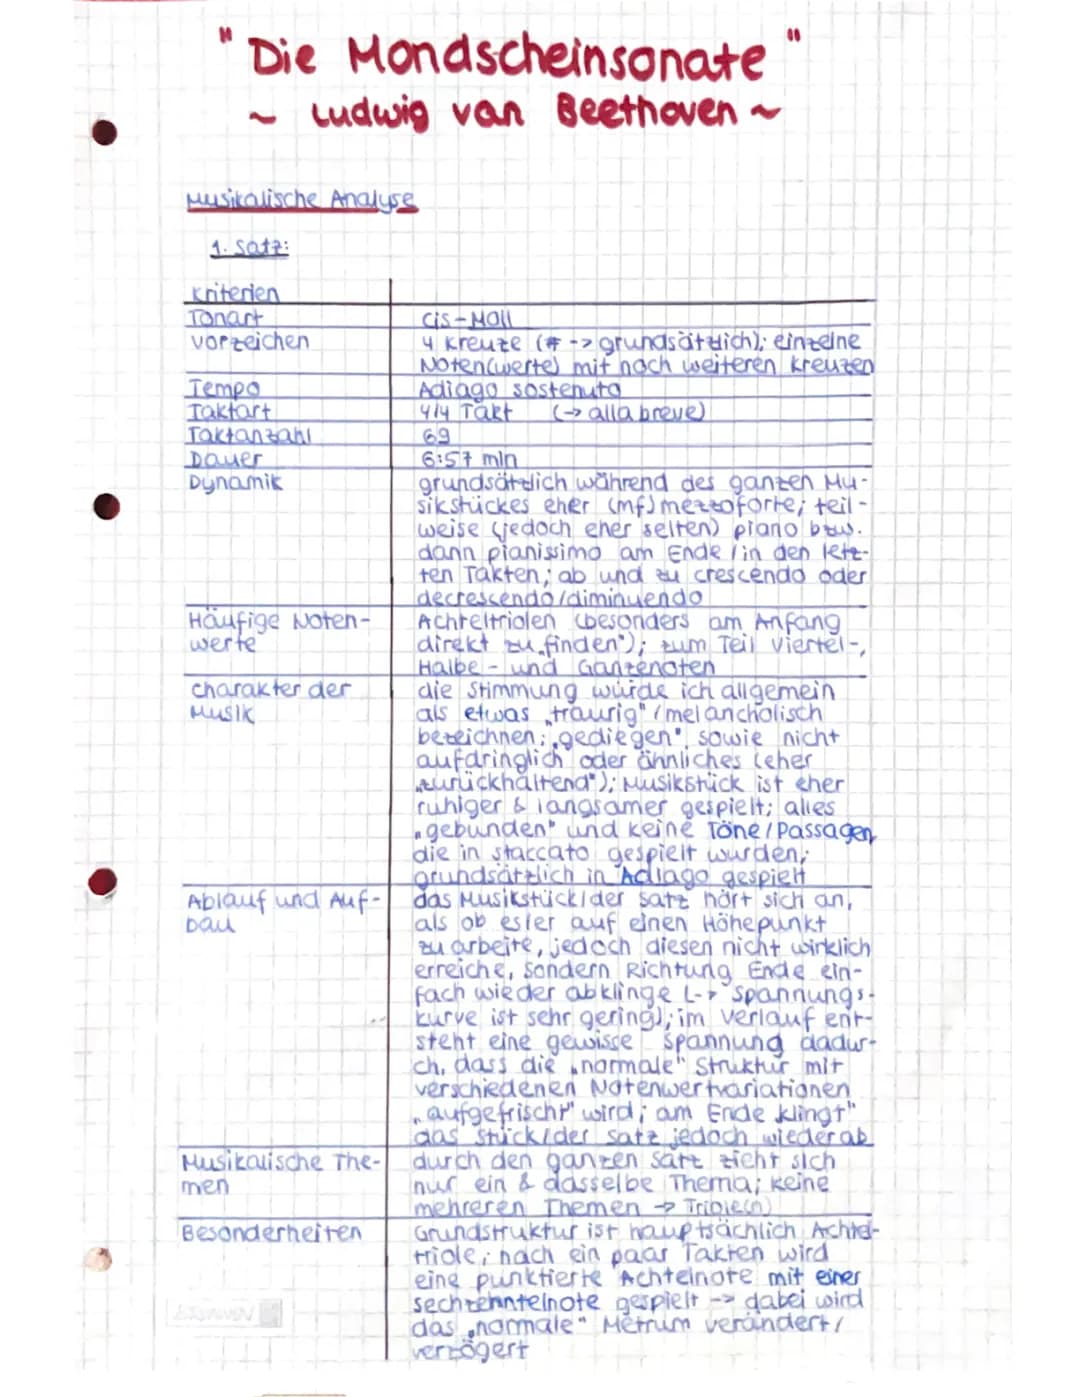 "Die Mondscheinsonate"
~ Ludwig van Beethoven ~
Musikalische Analyse
1. Satz:
Kriterien
Tonart cis-Moll
Vorzeichen 4 Kreuze (# -> grundsätzlich); einzelne
Noten(werte) mit noch weiteren Kreuzen
Tempo Adiago sostenuto
Taktart 4/4 Takt (-> alla breve)
Taktanzahl 69
Dauer 6:57 min
Dynamik grundsätzlich während des ganzen Mu-
sikstückes eher (mf) mezzoforte; teil-
weise (jedoch eher selten) piano bzw.
dann pianissimo am Ende / in den letz-
ten Takten; ab und zu crescendo oder
decrescendo/diminuendo
Häufige Noten- Achteltriolen (besonders am Anfang
werte direkt zu „finden"); zum Teil Viertel-,
Halbe- und Ganzenoten
Charakter der die Stimmung würde ich allgemein
Musik als etwas „traurig"/melancholisch
bezeichnen; „gediegen" sowie nicht
aufdringlich oder ähnliches (eher
„zurückhaltend"); Musikstück ist eher
ruhiger & langsamer gespielt; alles
„gebunden" und keine Töne/Passagen,
die in staccato gespielt wurden;
grundsätzlich in Adiago gespielt
Ablauf und Auf- das Musikstück/der Satz hört sich an,
bau als ob es/er auf einen Höhepunkt
zu arbeite, jedoch diesen nicht wirklich
erreiche, sondern Richtung Ende ein-
fach wieder abklinge (-> Spannungs-
kurve ist sehr gering); im Verlauf ent-
steht eine gewisse Spannung dadur-
ch, dass die „normale" Struktur mit
verschiedenen Notenwertvariationen
„aufgefrischt" wird; am Ende „klingt"
das Stück/der Satz jedoch wieder ab
Musikalische The- durch den ganzen Satz zieht sich
men nur ein & dasselbe Thema; keine
mehreren Themen -> Triole(n)
Besonderheiten Grundstruktur ist hauptsächlich Achtel-
triole; nach ein paar Takten wird
eine punktierte Achtelnote mit einer
Sechzehntelnote gespielt -> dabei wird
das „normale" Metrum verändert/
verzögert